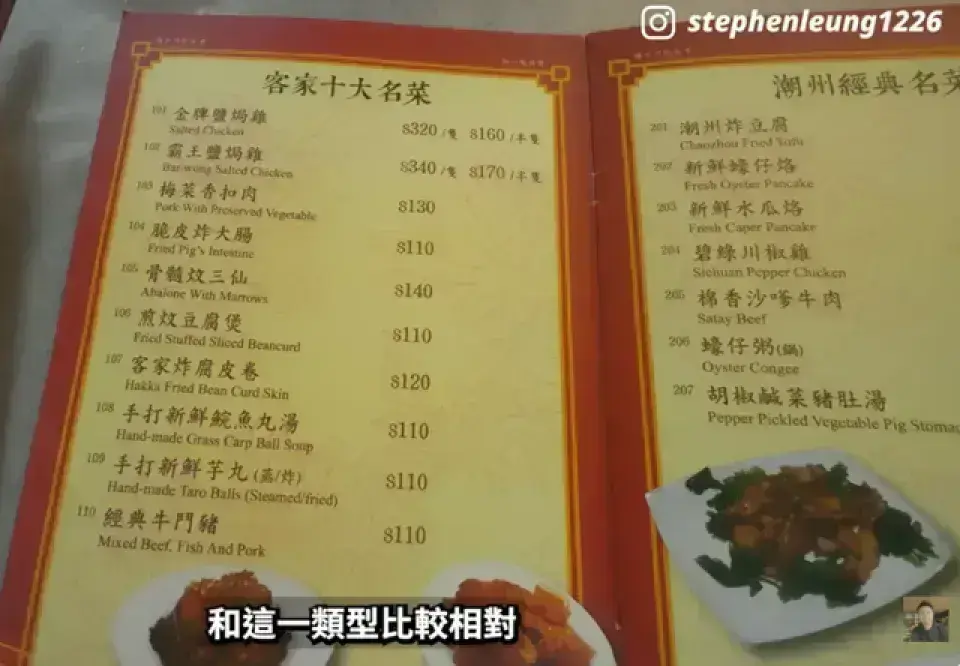 stephenleung1226
客家十大名菜
101 金牌鹽焗雞 $320/隻 $160/半隻
Salted Chicken
102 霸王鹽焗雞 $340/隻 $170/半隻
Bar-wong Salted Chicken
103 梅菜香扣肉 $130
Pork With Preserved Vegetable
104 脆皮炸大腸 $110
Fried Pig's Intestine
105 骨髓炆三仙 $140
Abalone With Marrows
106 煎炆豆腐煲 $110
Fried Stuffed Sliced Beancurd
107 客家炸腐皮卷 $120
Hakka Fried Bean Curd Skin
108 手打新鮮鯇魚丸湯 $110
Hand-made Grass Carp Ball Soup
109 手打新鮮芋丸(蒸/炸) $110
Hand-made Taro Balls (Steamed/fried)
110 經典牛鬥豬 $110
Mixed Beef, Fish And Pork
潮州經典名菜
201 潮州炸豆腐
Chaozhou Fried Tofu
202 新鮮蠔仔烙
Fresh Oyster Pancake
203 新鮮水瓜烙
Fresh Caper Pancake
204 碧綠川椒雞
Sichuan Pepper Chicken
205 棉香沙嗲牛肉
Satay Beef
206 蠔仔粥(鍋)
Oyster Congee
207 胡椒鹹菜豬肚湯
Pepper Pickled Vegetable Pig Stomac
和這一類型比較相對